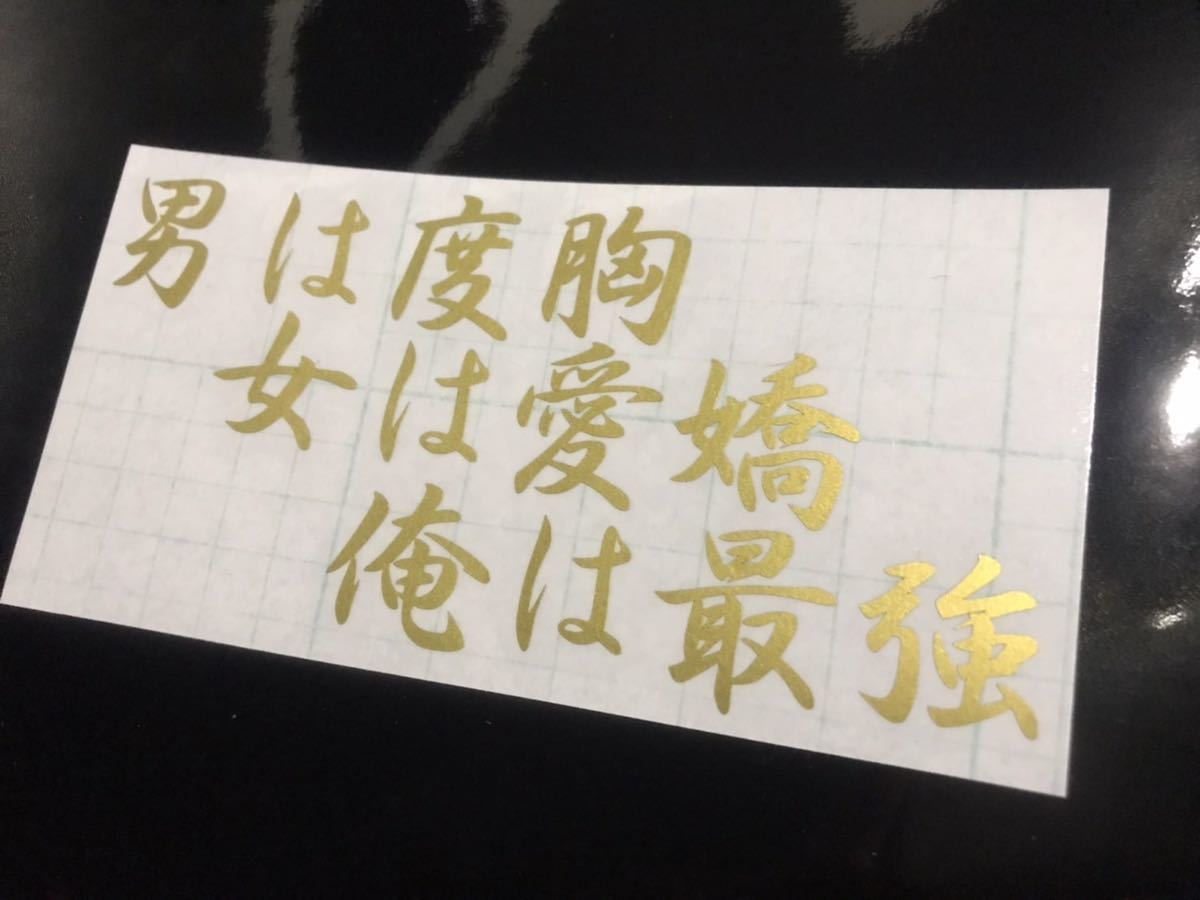 男は度胸
女は愛嬌
俺は最強